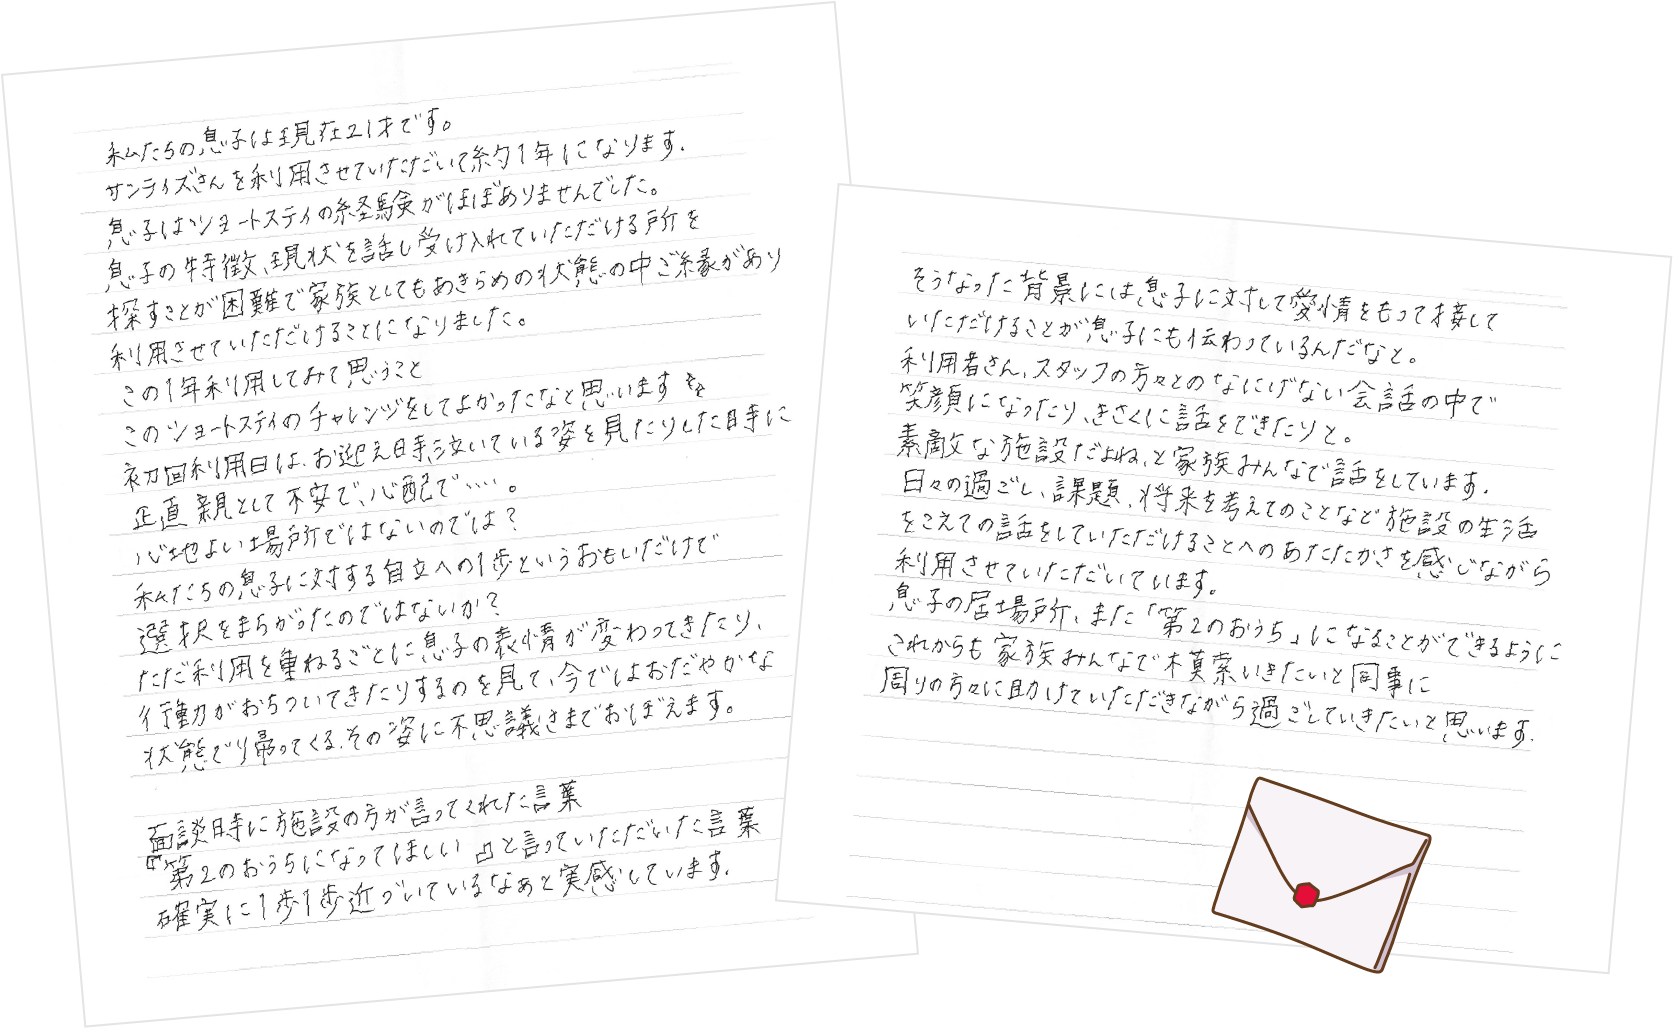 私たちの息子は現在21才です。
サンライズさんを利用させていただいて約1年になります.
息子はショートステイの経験がほぼありませんでした。
息子の特徴、現状を話し受け入れていただける所を
探すことが困難で家族としてもあきらめの状態の中ご縁があり
利用させていただけることになりました。
この1年利用してみて思うこと
このショートステイのチャレンジをしてよかったなと思います
初回利用日は、お迎え時、泣いている姿を見たりした時に
正直親として不安で、心配で‥‥。
心地よい場所ではないのでは？
私たちの息子に対する自立への1歩というおもいだけで
選択をまちがったのではないか？
ただ利用を重ねるごとに息子の表情が変わってきたり、
行動がおちついてきたりするのを見て、今ではおだやかな
状態でり帰ってくる、その姿に不思議さまでおぼえます。
面談時に施設の方が言ってくれた言葉
『第2のおうちになってほしい』と言っていただいた言葉
確実に1歩1歩近づいているなぁと実感しています.
そうなった背景には息子に対して愛情をもって接して
いただけることが息子にも伝わっているんだなと。
利用者さん、スタッフの方々とのなにげない会話の中で
笑顔になったり、きさくに話をできたりと。
素敵な施設だよね、と家族みんなで話をしています.
日々の過ごし、課題、将来を考えてのことなど施設の生活
をこえての話をしていただけることへのあたたかさを感じながら
利用させていただいています。
息子の居場所、また「第2のおうち」になることができるように
これからも家族みんなで模索いきたいと同事に
周りの方々に助けていただきながら過ごしていきたいと思います.